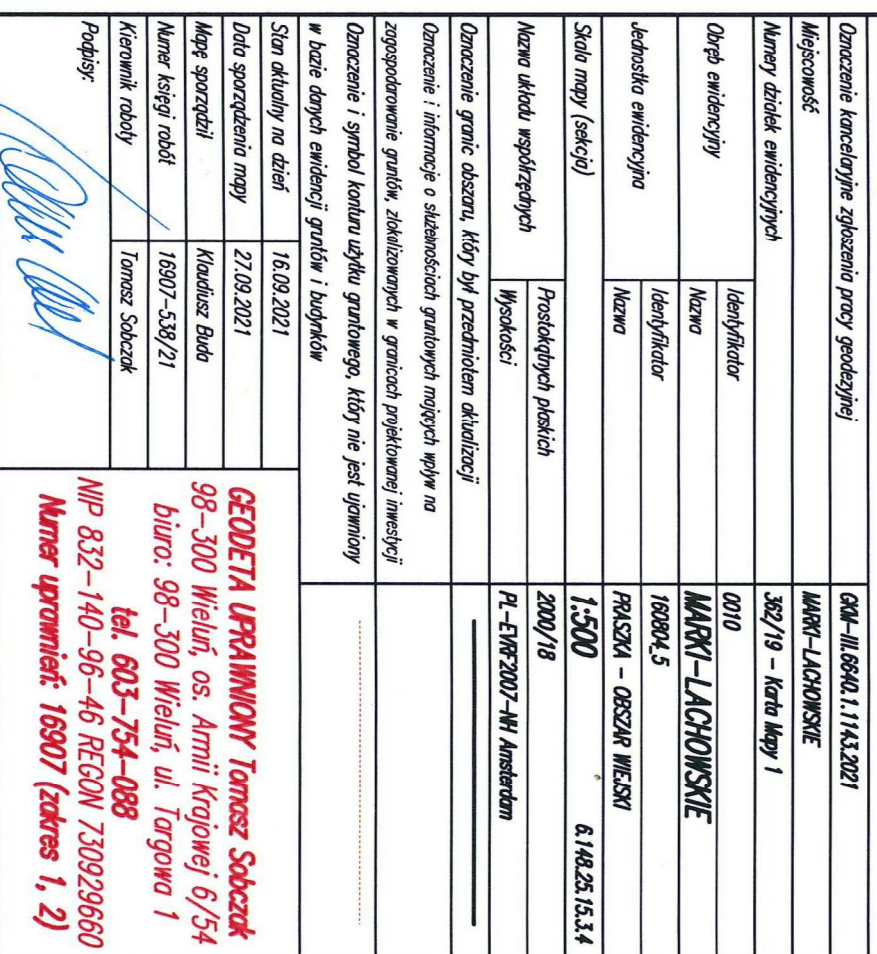 Oznaczenie kancelaryjne zgłoszenia pracy geodezyjnej GKM-III.6640.1.1143.2021
Miejscowość MARKI-LACHOWSKIE
Numery działek ewidencyjnych 362/19 - Karta Mapy 1
Obręb ewidencyjny Identyfikator 0010
Nazwa MARKI-LACHOWSKIE
Jednostka ewidencyjna Identyfikator 160804_5
Nazwa PRASZKA - OBSZAR WIEJSKI
Skala mapy (sekcja) 1:500 6.148.25.15.3.4
Nazwa układu współrzędnych Prostokątnych płaskich 2000/18
Wysokości PL-EVRF2007-NH Amsterdam
Oznaczenie granic obszaru, który był przedmiotem aktualizacji
Oznaczenie i informacje o służebnościach gruntowych mających wpływ na
zagospodarowanie gruntów, zlokalizowanych w granicach projektowanej inwestycji
Oznaczenie i symbol konturu użytku gruntowego, który nie jest ujawniony
w bazie danych ewidencji gruntów i budynków
Stan aktualny na dzień 16.09.2021
Data sporządzenia mapy 27.09.2021
Mapę sporządził Klaudiusz Buda
Numer księgi robót 16907-538/21
Kierownik roboty Tomasz Sobczak
Podpisy:
GEODETA UPRAWNIONY Tomasz Sobczak
98-300 Wieluń, os. Armii Krajowej 6/54
biuro: 98-300 Wieluń, ul. Targowa 1
tel. 603-754-088
NIP 832-140-96-46 REGON 730929660
Numer uprawnień: 16907 (zakres 1, 2)